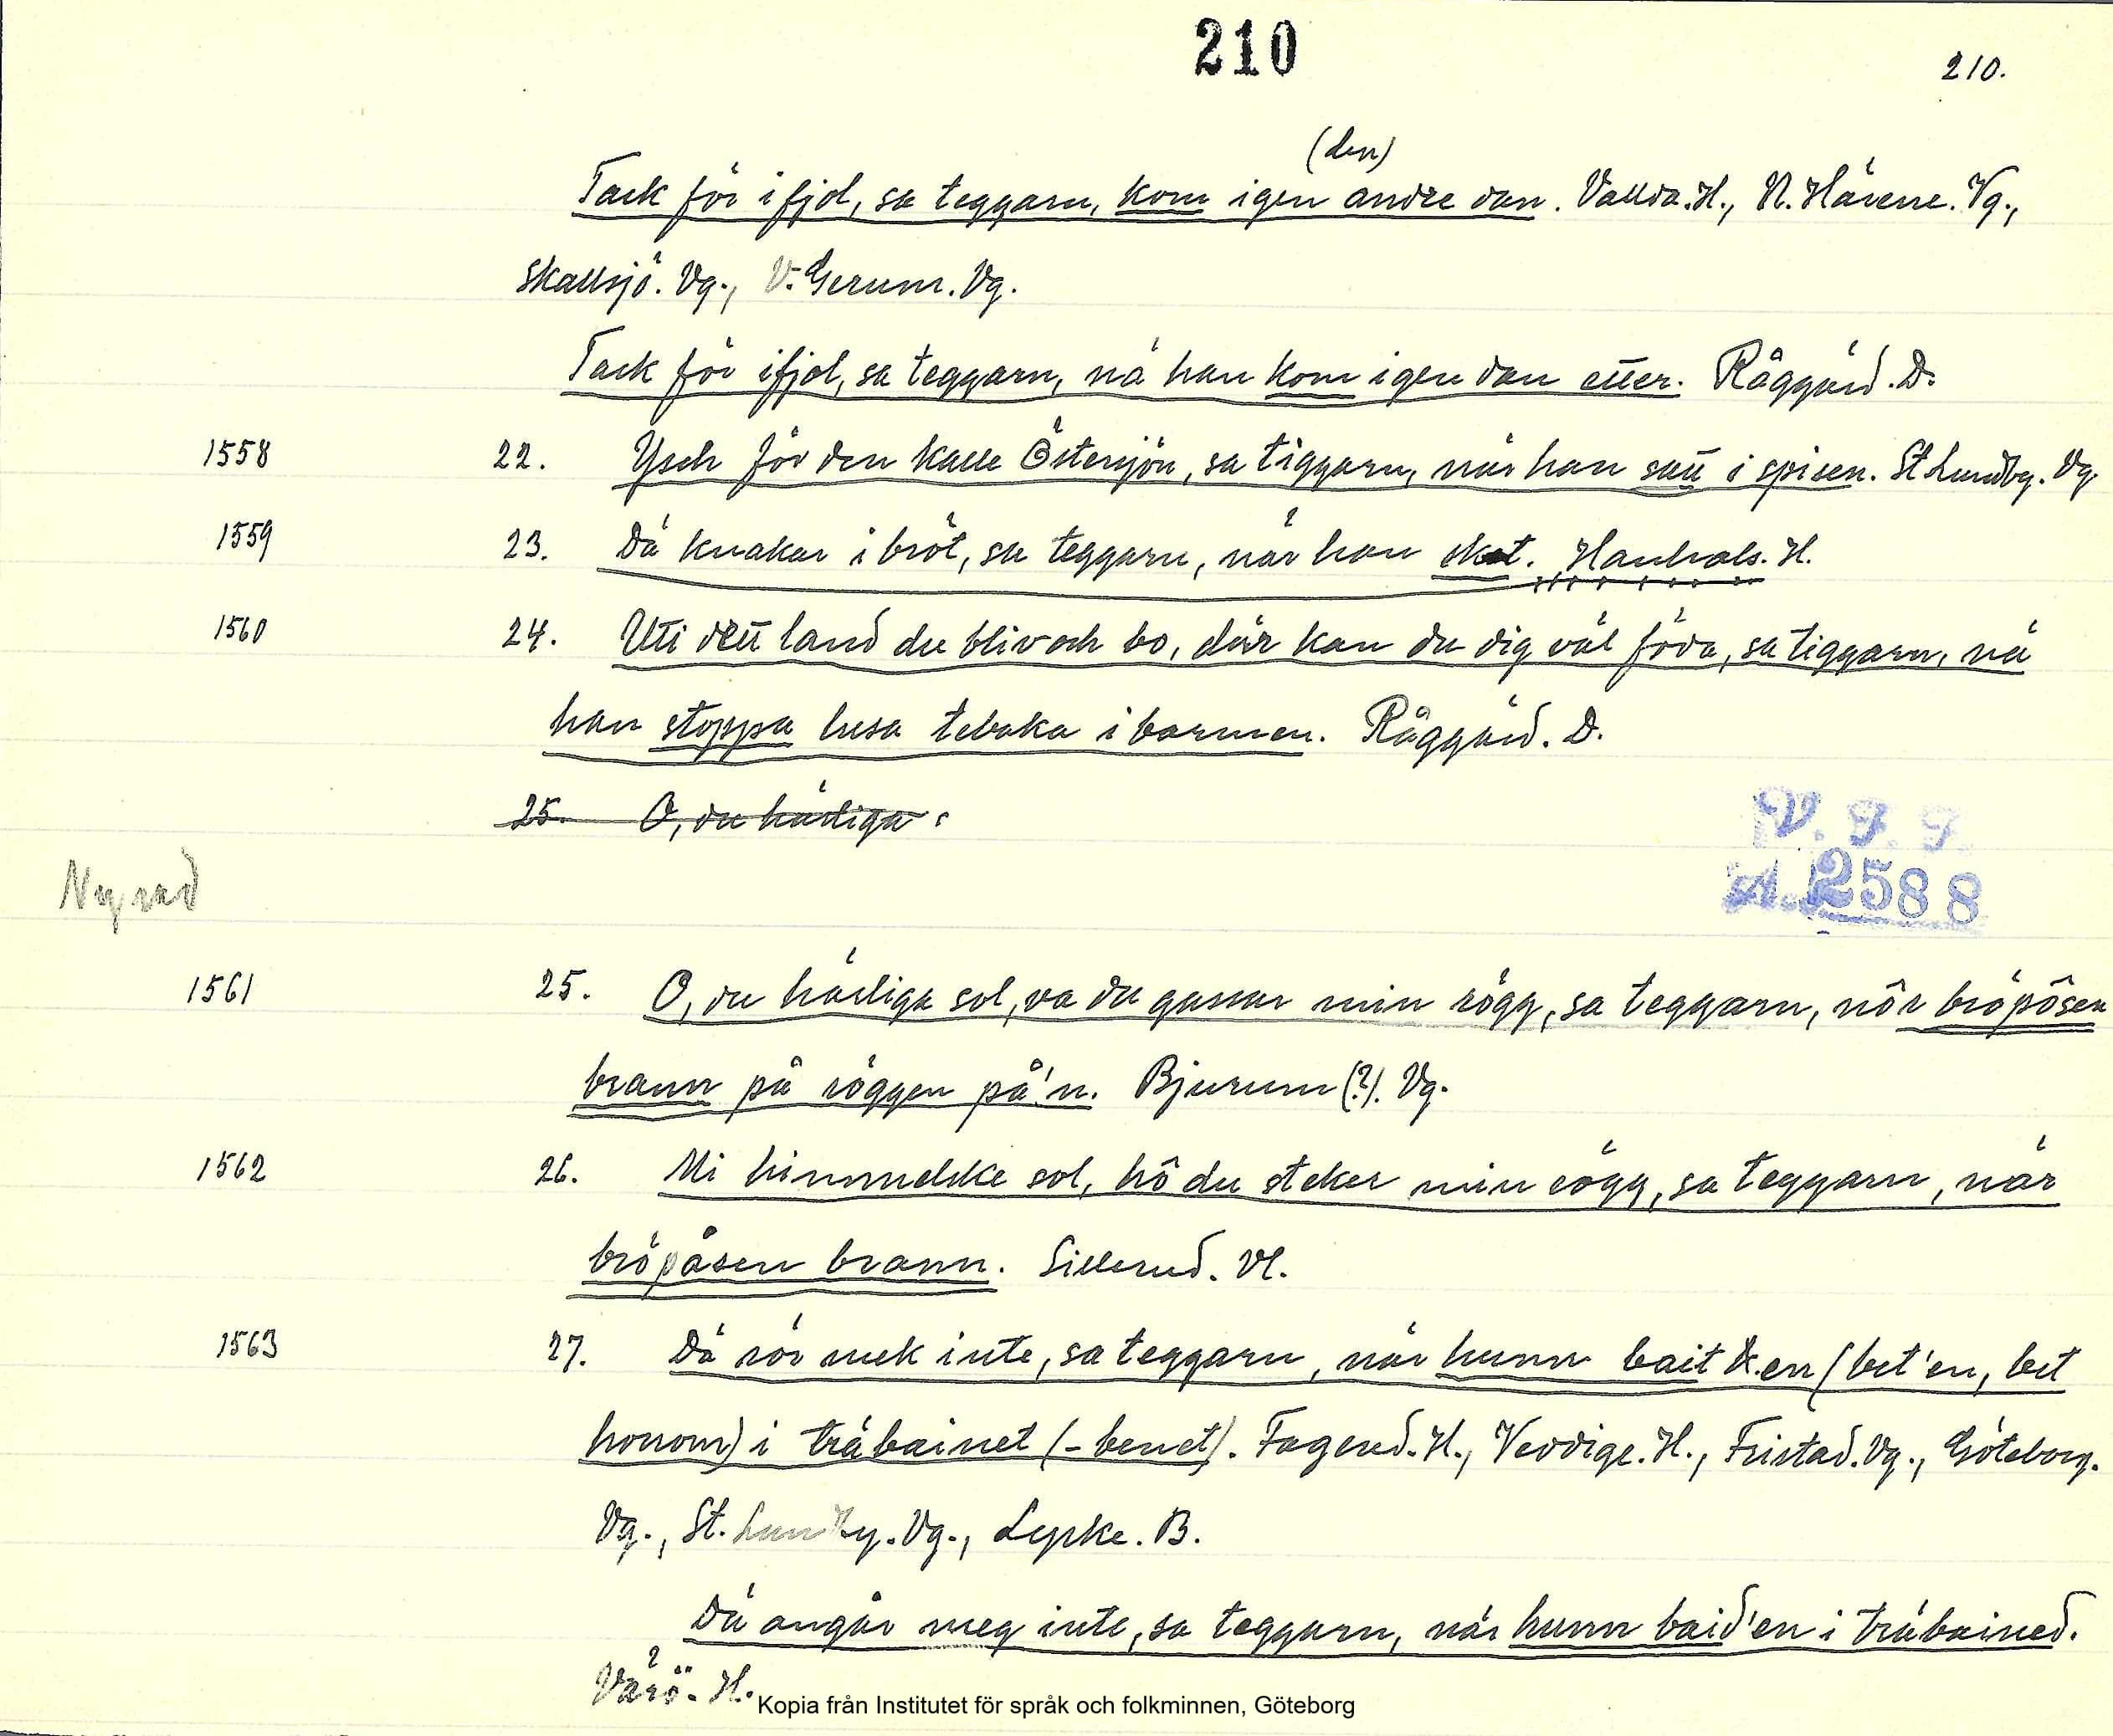 210
210.
(den)
Tack för i fjol, sa teggarn, kom igen andre dan. Vallda. H., N. Härene. Vg.,
Skallsjö. Vg., V. Gerum. Vg.
Tack för ifjol, sa teggarn, nä han kom igen dan etter. Råggärd. D.
1558 22. Ysch för den kalle Östersjön, sa tiggarn, när han satt i spisen. St Lundby. Vg.
1559 23. Dä knakar i bröt, sa teggarn, när han sket. Hanhals. H.
1560 24. Uti dett land du bliv och bo, där kan du dig väl föda, sa tiggarn, nä
han stoppa lusa tebaka i barmen. Råggärd. D.
25. O, du härliga
V. F. F.
A. 2588
Ny rad
1561 25. O, du härliga sol, va du gassar min rögg, sa teggarn, nôr bröpôsen
brann på röggen på'n. Bjurum (?). Vg.
1562 26. Mi himmelske sol, hô du steker min rögg, sa teggarn, når
bröpåsen brann. Sillerud. Vl.
1563 27. Dä rör mek inte, sa teggarn, når hunn bait en (bet'en, bet
honom) i träbainet (-benet). Fagered. H., Veddige. H., Fristad. Vg., Göteborg.
Vg., St. Lundby. Vg., Lyske. B.
Dä angår meg inte, sa teggarn, når hunn baid'en i träbained.
Värö. H.
Kopia från Institutet för språk och folkminnen, Göteborg